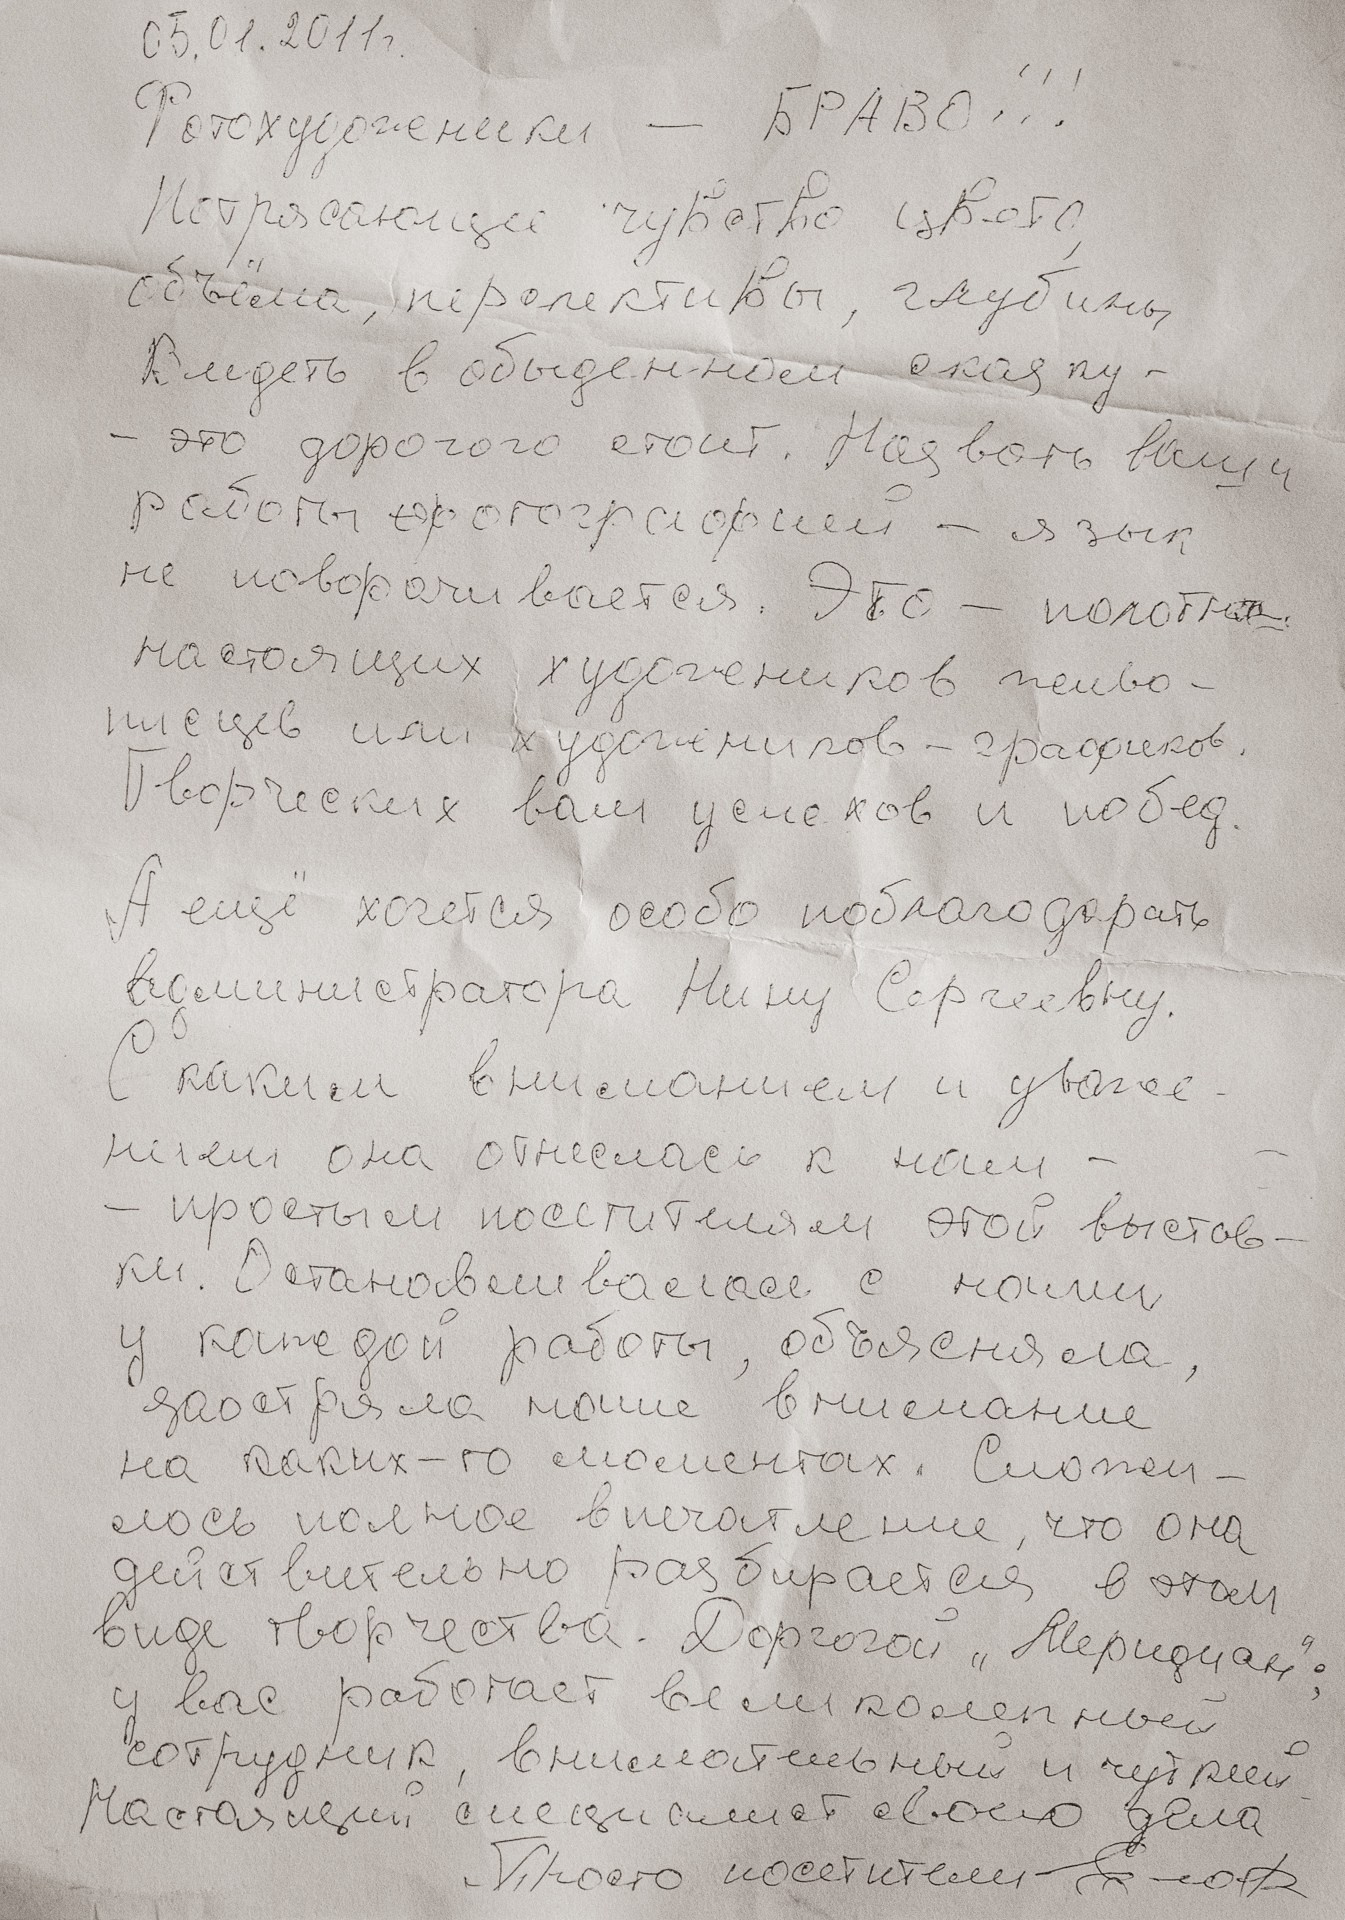 05.01.2011г.
Фотохудожники — БРАВО!!!
Потрясающее чувство цвета,
объёма, перспективы, глубины
Видеть в обыденном сказку -
- это дорогого стоит. Назвать ваши
работы фотографией - язык
не поворачивается. Это - полотна
настоящих художников живо-
писцев или художников-графиков.
Творческих вам успехов и побед.
А ещё хочется особо поблагодарить
администратора Нину Сергеевну.
С каким вниманием и уваже-
нием она отнеслась к нам -
- простым посетителям этой выстав-
ки. Останавливалась с нами
у каждой работы, объясняла,
заостряла наше внимание
на каких-то моментах. Сложи-
лось полное впечатление, что она
действительно разбирается в этом
виде творчества. Дорогой „Меридиан":
у вас работает великолепный
сотрудник, внимательный и чуткий
Настоящий специалист своего дела
Просто посетители